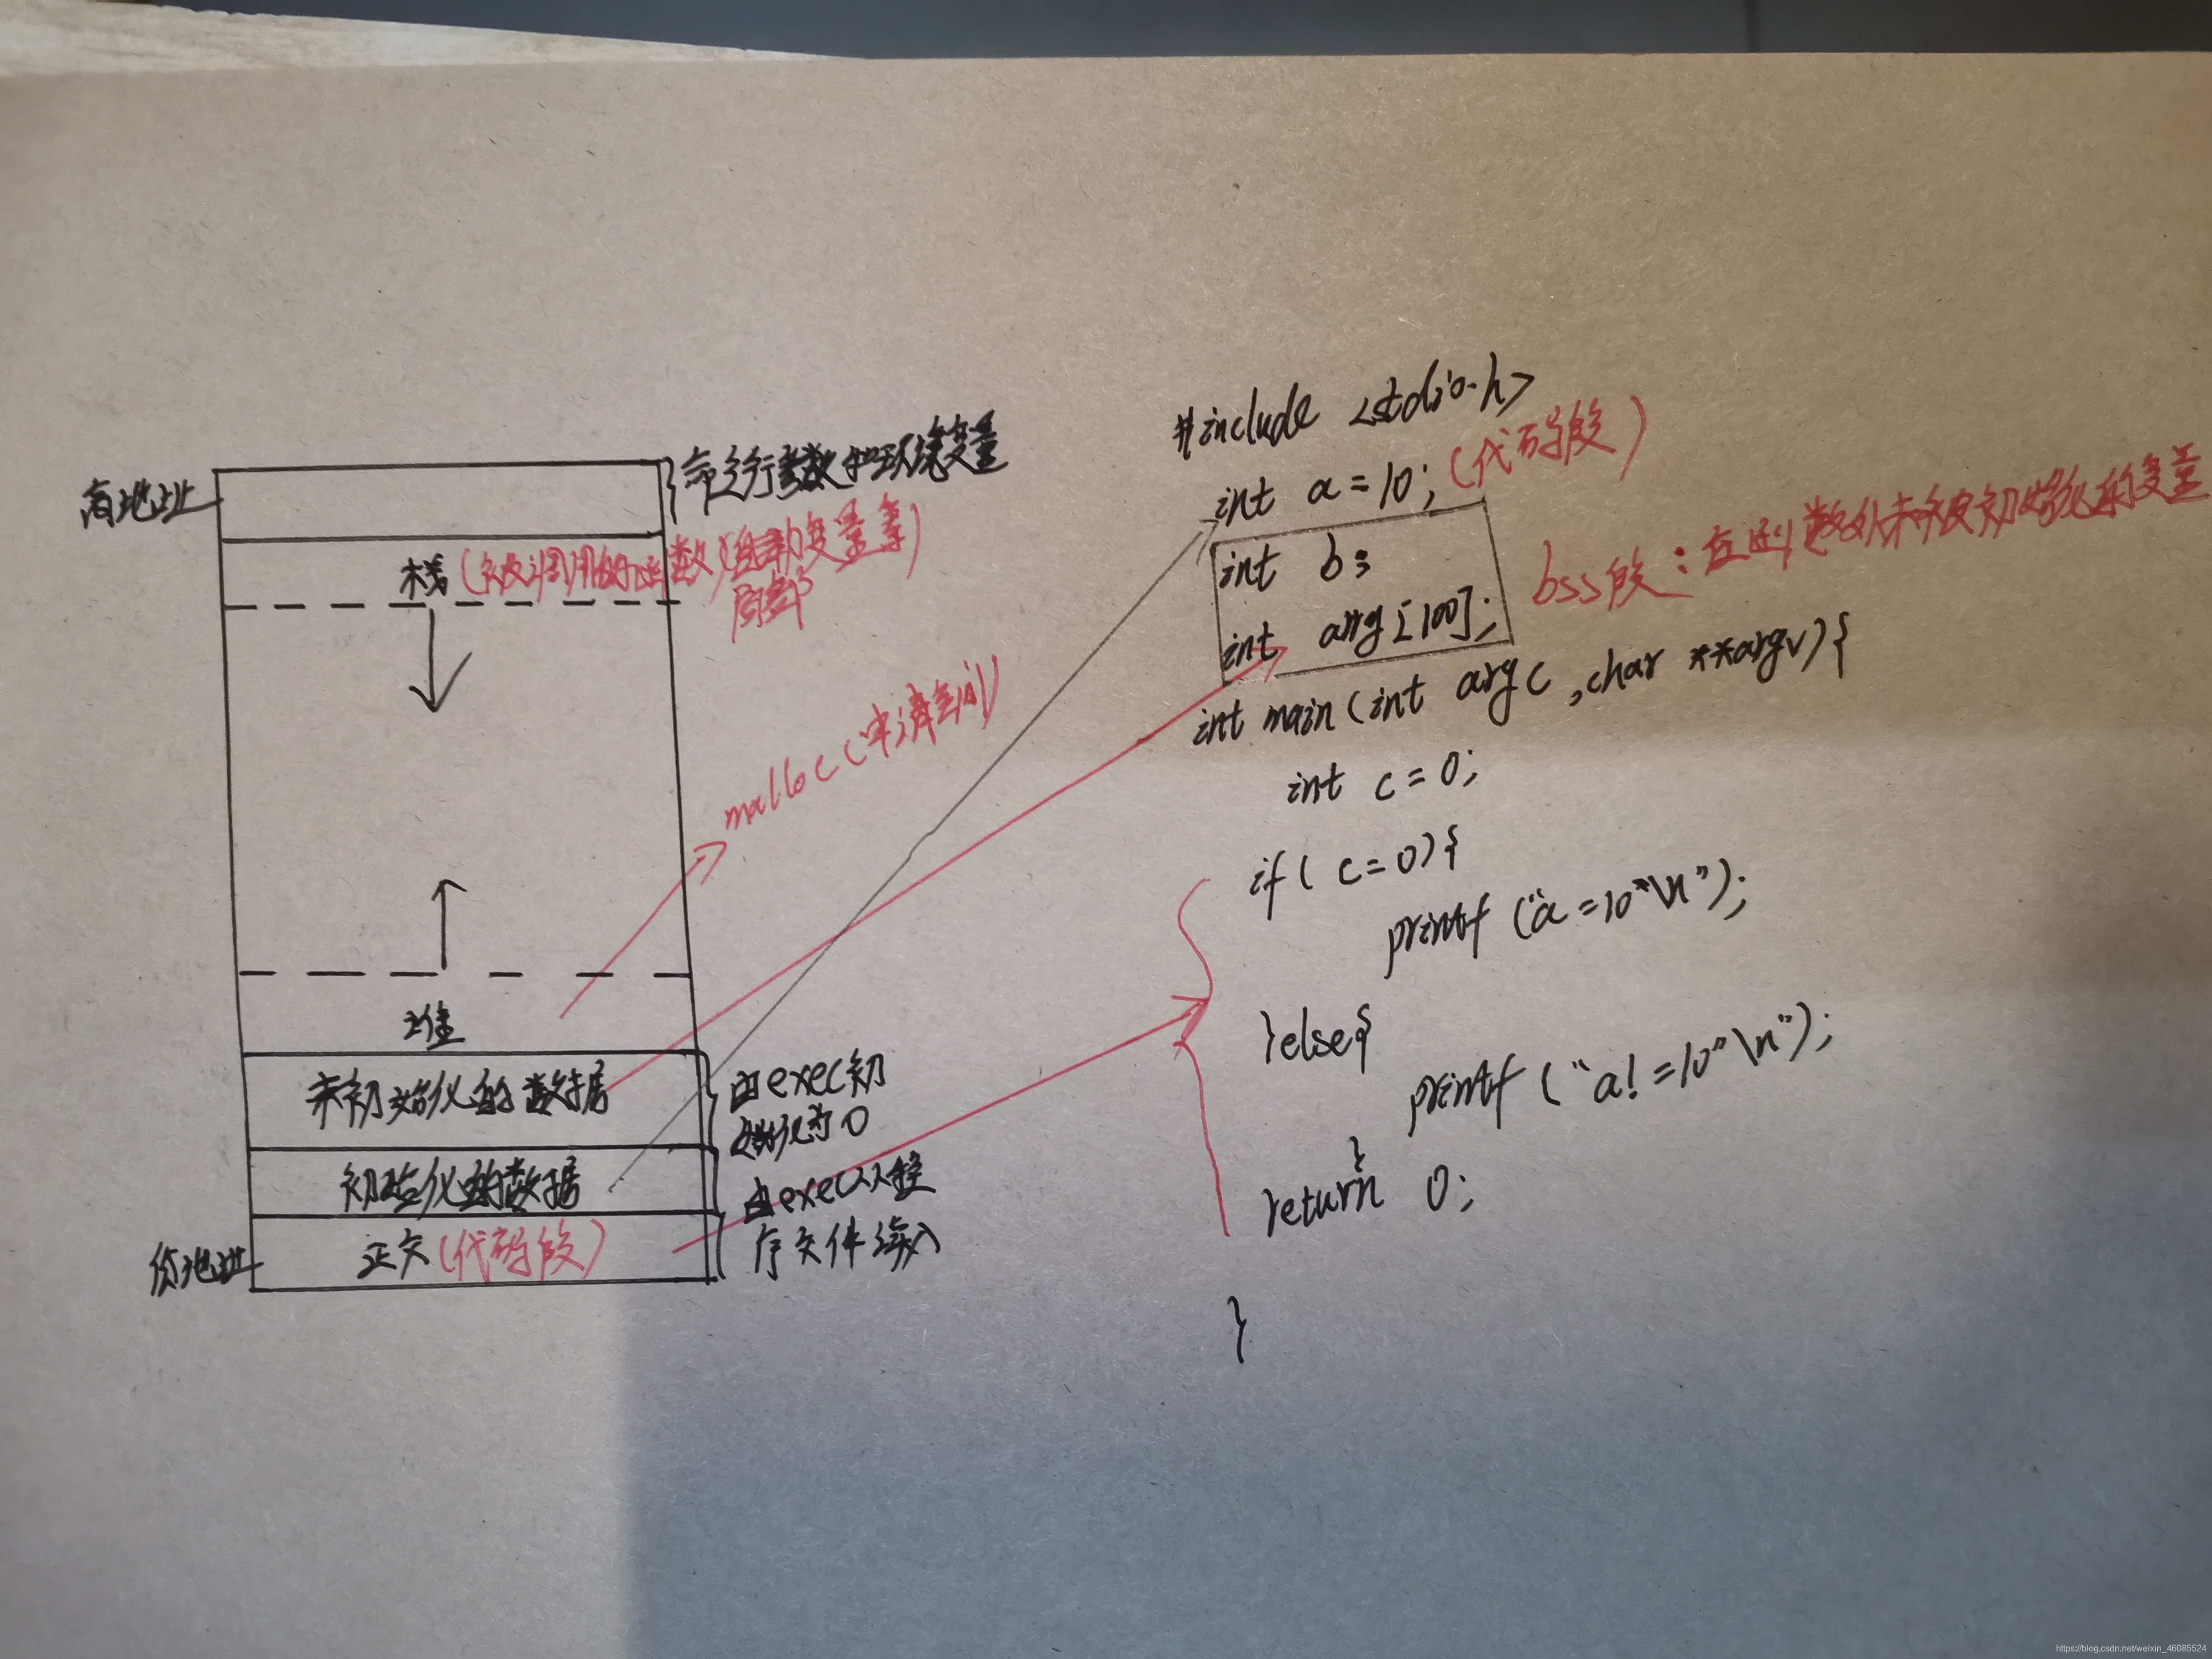 高地址
命令行参数和环境变量
栈(被调用的函数)(自动变量等)
局部
malloc(申请空间)
堆
未初始化的数据
由exec初
始化为0
初始化的数据
由exec从程
序文件读入
低地址
正文(代码段)
#include <stdio.h>
int a=10; (代码段)
int b;
int arrg[100];
bss段:在函数外未被初始化的变量
int main(int argc ,char **argv){
int c=0;
if( c=0){
printf ("a=10"\n");
}else{
printf ("a!=10"\n");
}
return 0;
}
https://blog.csdn.net/weixin_46085524